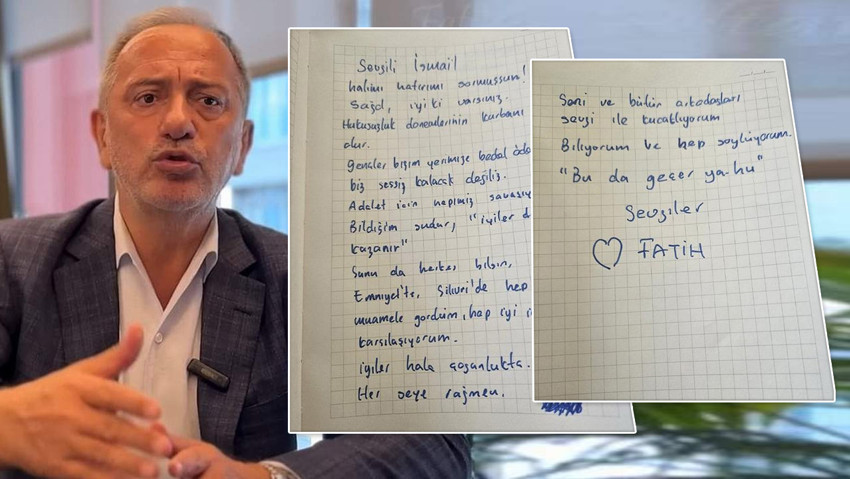 Sevgili İsmail
halimi hatırımı sormuşsun!
Sağol, iyi ki varsınız.
Hukusuzluk dönemlerinin kurbanı
olur.
gençler bizim yerimize bedel öde
biz sessiz kalacak değiliz.
Adalet için hepimiz savaşıy
Bildiğim şudur, "iyiler d
kazanır"
Şunu da herkes bilsin,
Emniyet'te, Silivri'de hep
muamele gördüm, hep iyi
karşılaşıyorum.
iyiler hala çoğunlukta.
Her şeye rağmen.
Seni ve bütün arkadaşları
sevgi ile kucaklıyorum
Biliyorum ve hep söylüyorum.
"Bu da geçer ya-hu"
Sevgiler
FATİH